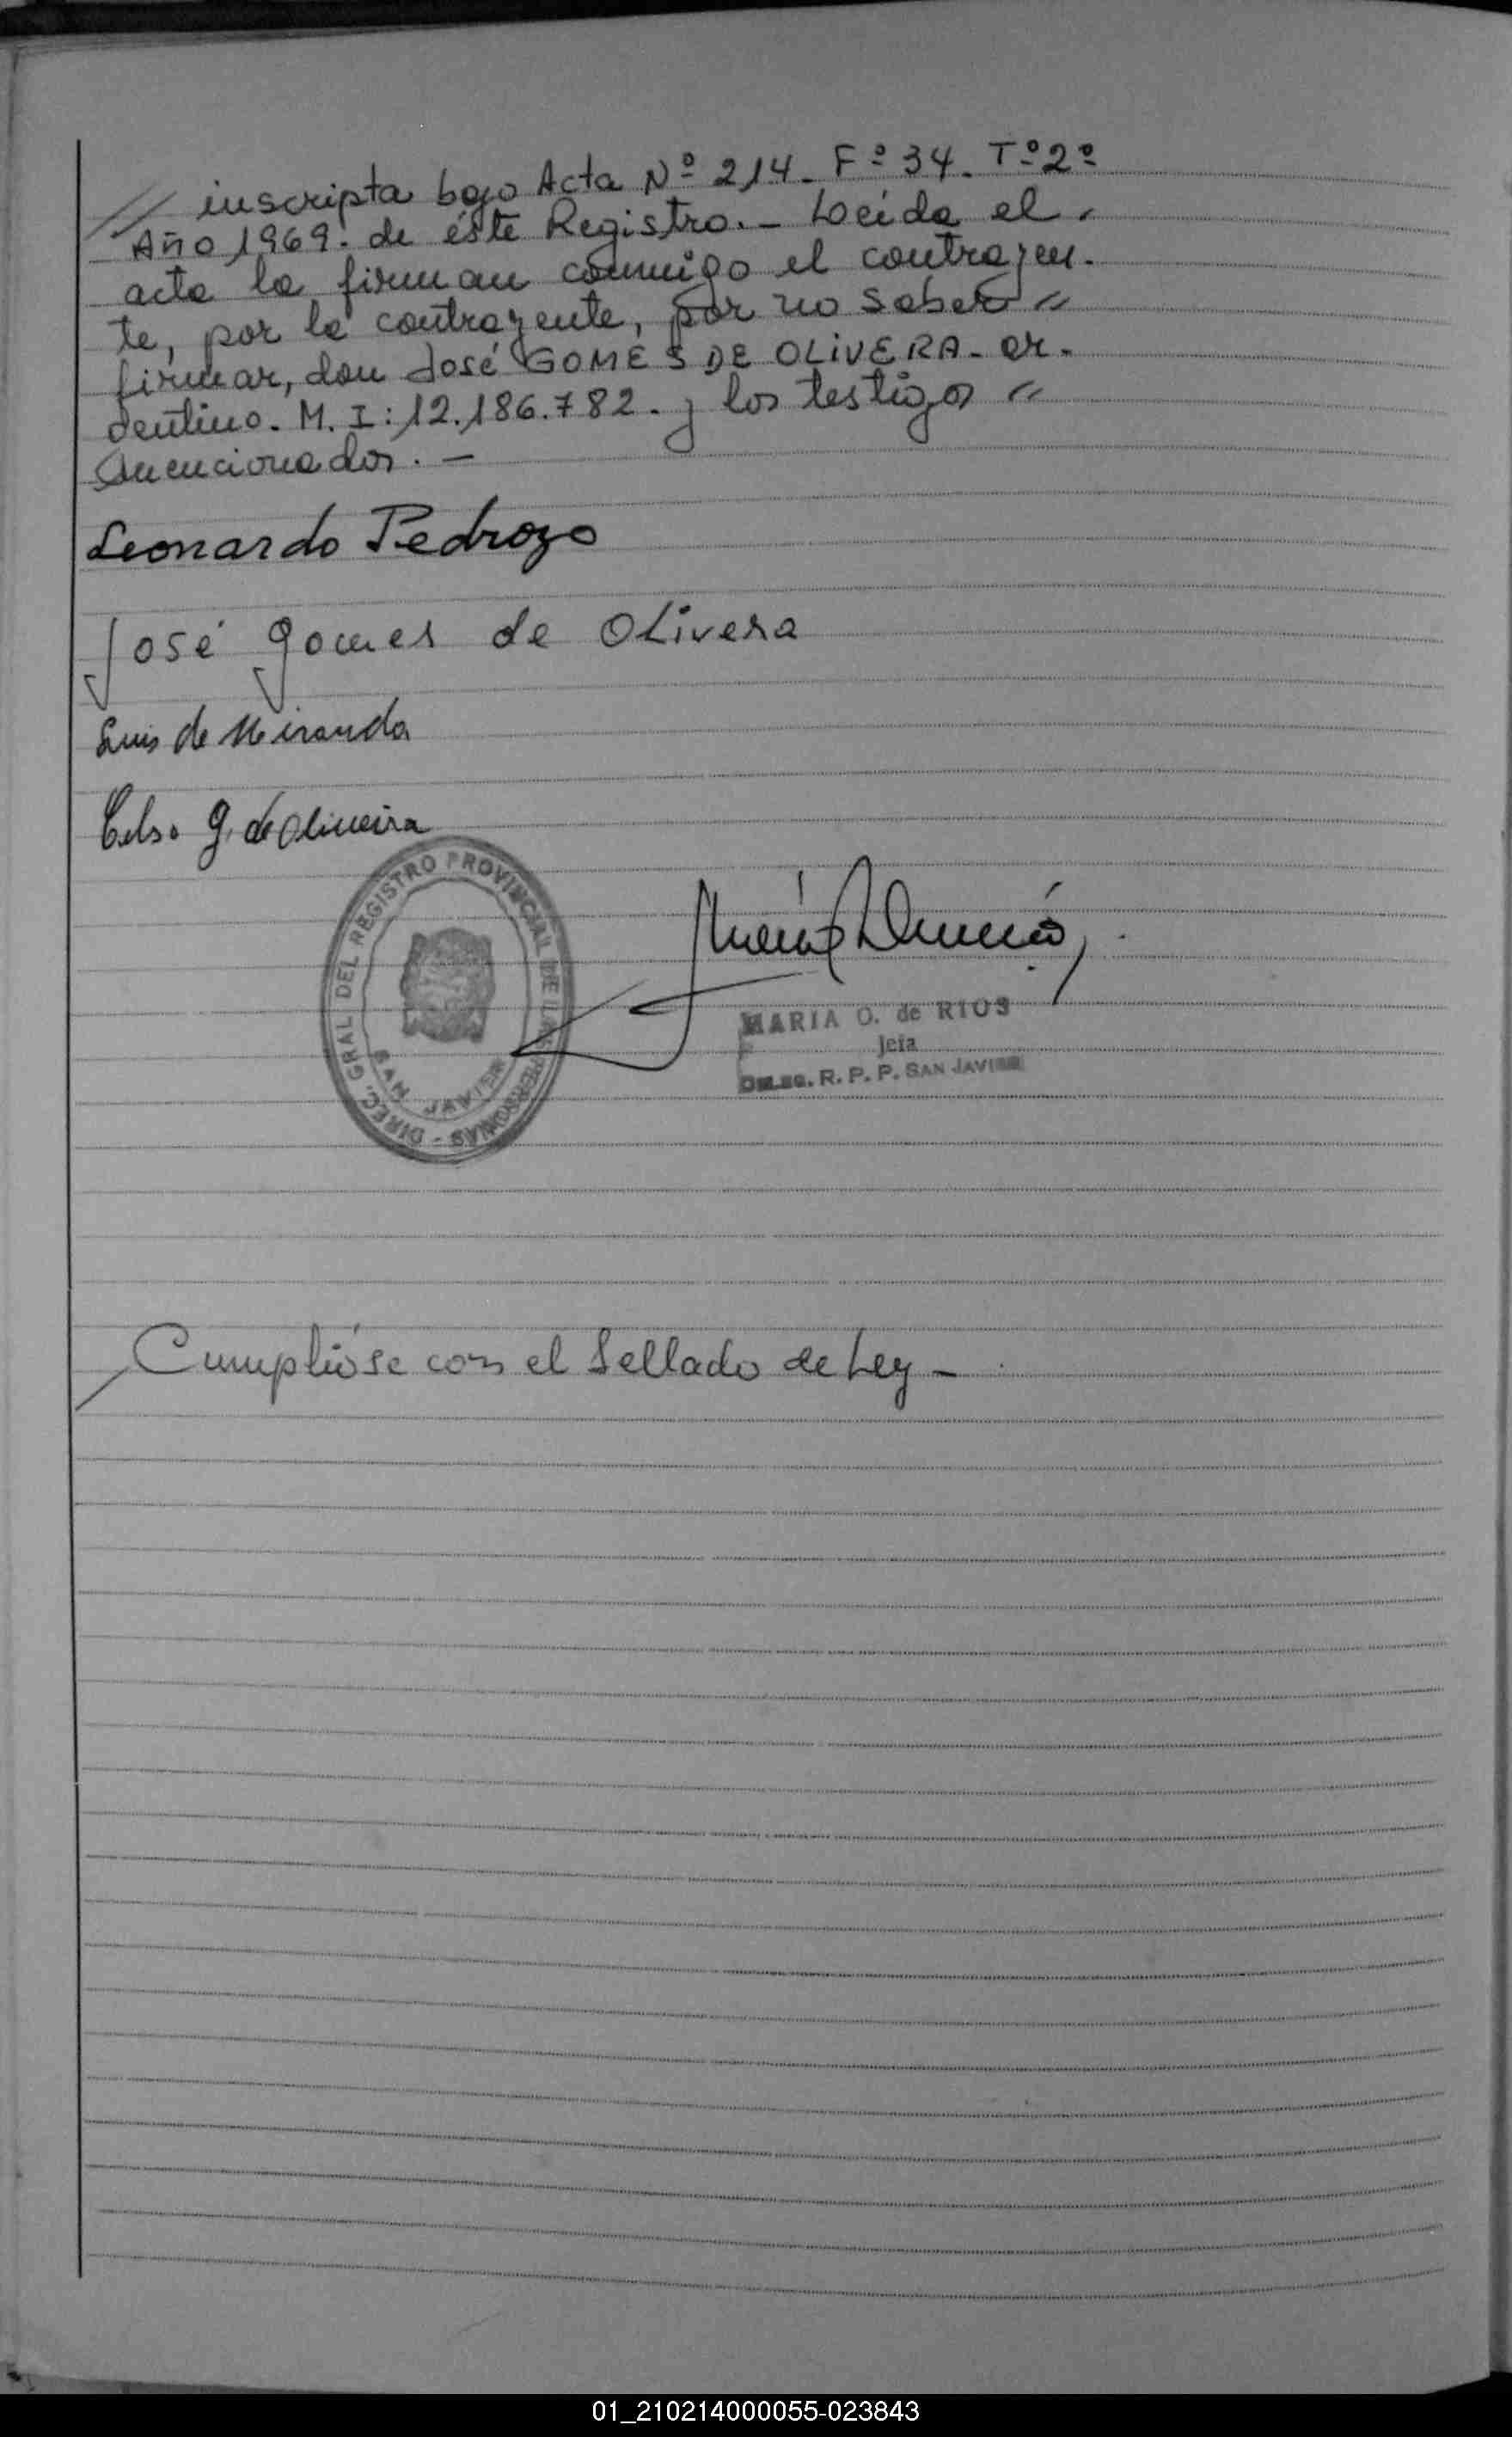 // inscripta bajo Acta Nº 214. Fº 34. Tº 2º
Año 1969. de éste Registro. - Leída el
acta la firman conmigo el contrayen-
te, por la contrayente, por no saber =
firmar, don José GOMES DE OLIVERA - ar-
gentino. M. I: 12.186.782. y los testigos =
mencionados. -
Leonardo Pedrozo
José gomes de Olivera
Luis de Miranda
Celso g. de Oliveira
DIREC. GRAL DEL REGISTRO PROVINCIAL DE LAS PERSONAS -
SAN JAVIER
MARIA O. de RIOS
Jefa
DELEG. R. P. P. SAN JAVIER
Cumplióse con el Sellado de Ley -
01_210214000055-023843